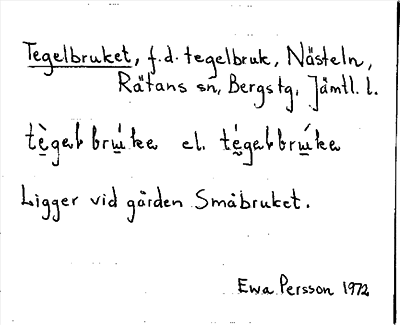 Tegelbruket, f.d. tegelbruk, Nästeln,
Rätans sn, Bergs tg, Jämtl. l.
tè̤gal brṳ́ka el. té̤galbrṳ́ka
Ligger vid gården Småbruket.
Ewa Persson 1972